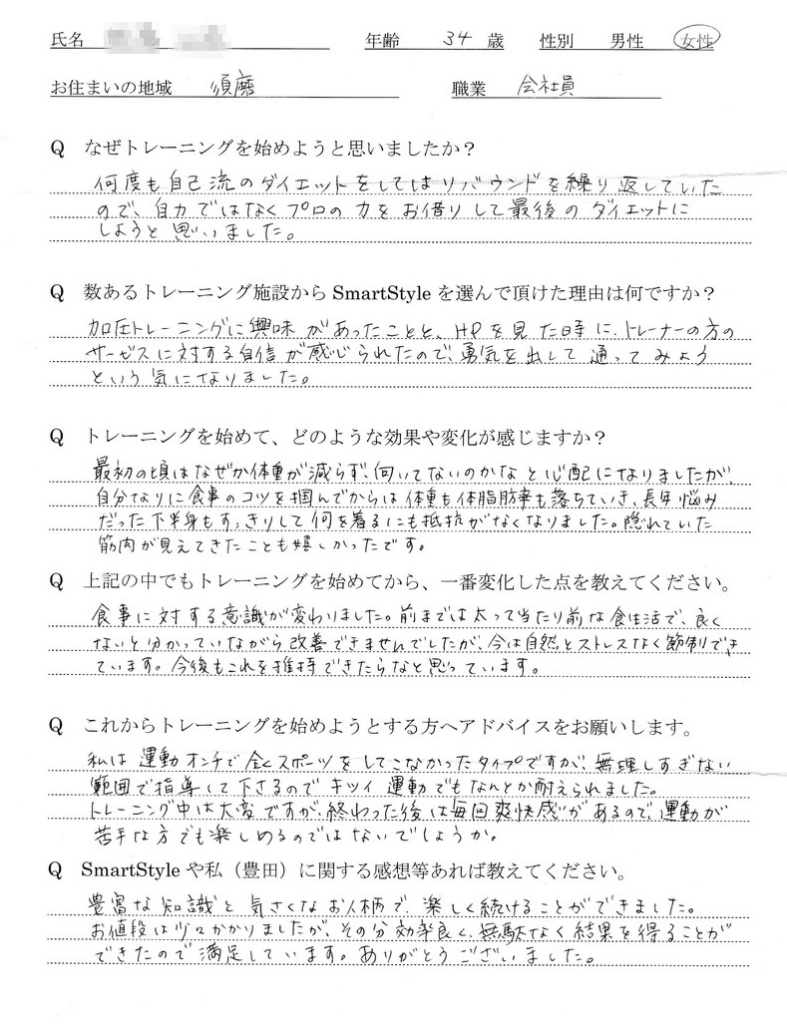 氏名 年齢 34 歳 性別 男性 女性
お住まいの地域 須磨 職業 会社員
Q なぜトレーニングを始めようと思いましたか？
何度も自己流のダイエットをしてはリバウンドを繰り返していた
ので、自力ではなくプロの力をお借りして最後のダイエットに
しようと思いました。
Q 数あるトレーニング施設から SmartStyle を選んで頂けた理由は何ですか？
加圧トレーニングに興味があったことと、HPを見た時に、トレーナーの方の
サービスに対する自信が感じられたので、勇気を出して通ってみよう
という気になりました。
Q トレーニングを始めて、どのような効果や変化が感じますか？
最初の頃はなぜか体重が減らず、向いてないのかなと心配になりましたが、
自分なりに食事のコツを掴んでからは体重も体脂肪率も落ちていき、長年悩み
だった下半身もすっきりして何を着るにも抵抗がなくなりました。隠れていた
筋肉が見えてきたことも嬉しかったです。
Q 上記の中でもトレーニングを始めてから、一番変化した点を教えてください。
食事に対する意識が変わりました。前までは太って当たり前な食生活で、良く
ないと分かっていながら改善できませんでしたが、今は自然とストレスなく節制でき
ています。今後もこれを維持できたらなと思っています。
Q これからトレーニングを始めようとする方へアドバイスをお願いします。
私は運動オンチで全くスポーツをしてこなかったタイプですが、無理しすぎない
範囲で指導して下さるのでキツイ運動でもなんとか耐えられました。
トレーニング中は大変ですが、終わった後は毎回爽快感があるので、運動が
苦手な方でも楽しめるのではないでしょうか。
Q SmartStyle や私（豊田）に関する感想等あれば教えてください。
豊富な知識と気さくなお人柄で、楽しく続けることができました。
お値段は少々かかりましたが、その分効率良く、無駄なく結果を得ることが
できたので満足しています。ありがとうございました。